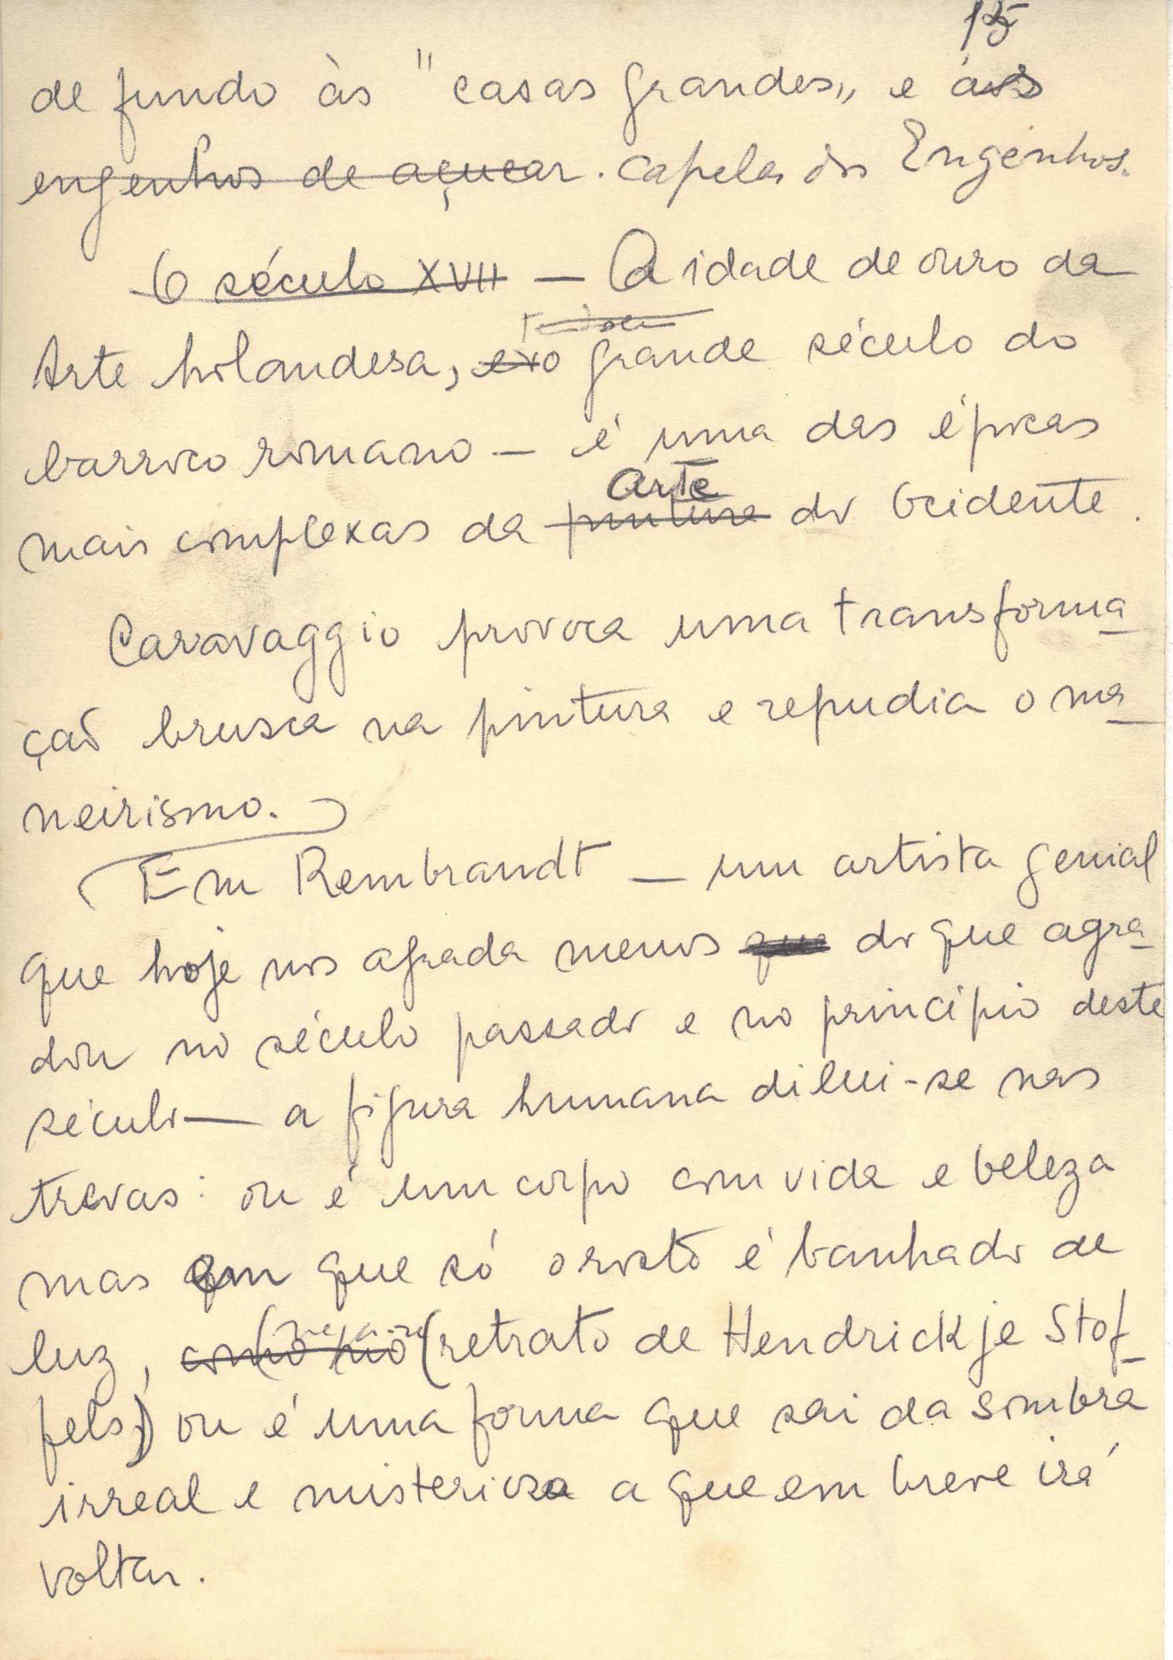 15
de fundo às "casas grandes„ e às
engenhos de açucar. capelas dos Engenhos.
O século XVII — A idade de ouro da
Arte holandesa, e o grande século do
barroco romano — é uma das épocas
Arte
mais complexas da pintura do Ocidente.
Caravaggio provoca uma transforma
ção brusca na pintura e repudia o ma
neirismo.
Em Rembrandt — um artista genial
que hoje nos agrada menos que do que agra
dou no século passado e no princípio deste
século — a figura humana dilui-se nas
trevas: ou é um corpo com vida e beleza
mas em que só o rosto é banhado de
luz, como no (retrato de Hendrickje Stof
fels) ou é uma forma que sai da sombra
irreal e misteriosa a que em breve irá
voltar.